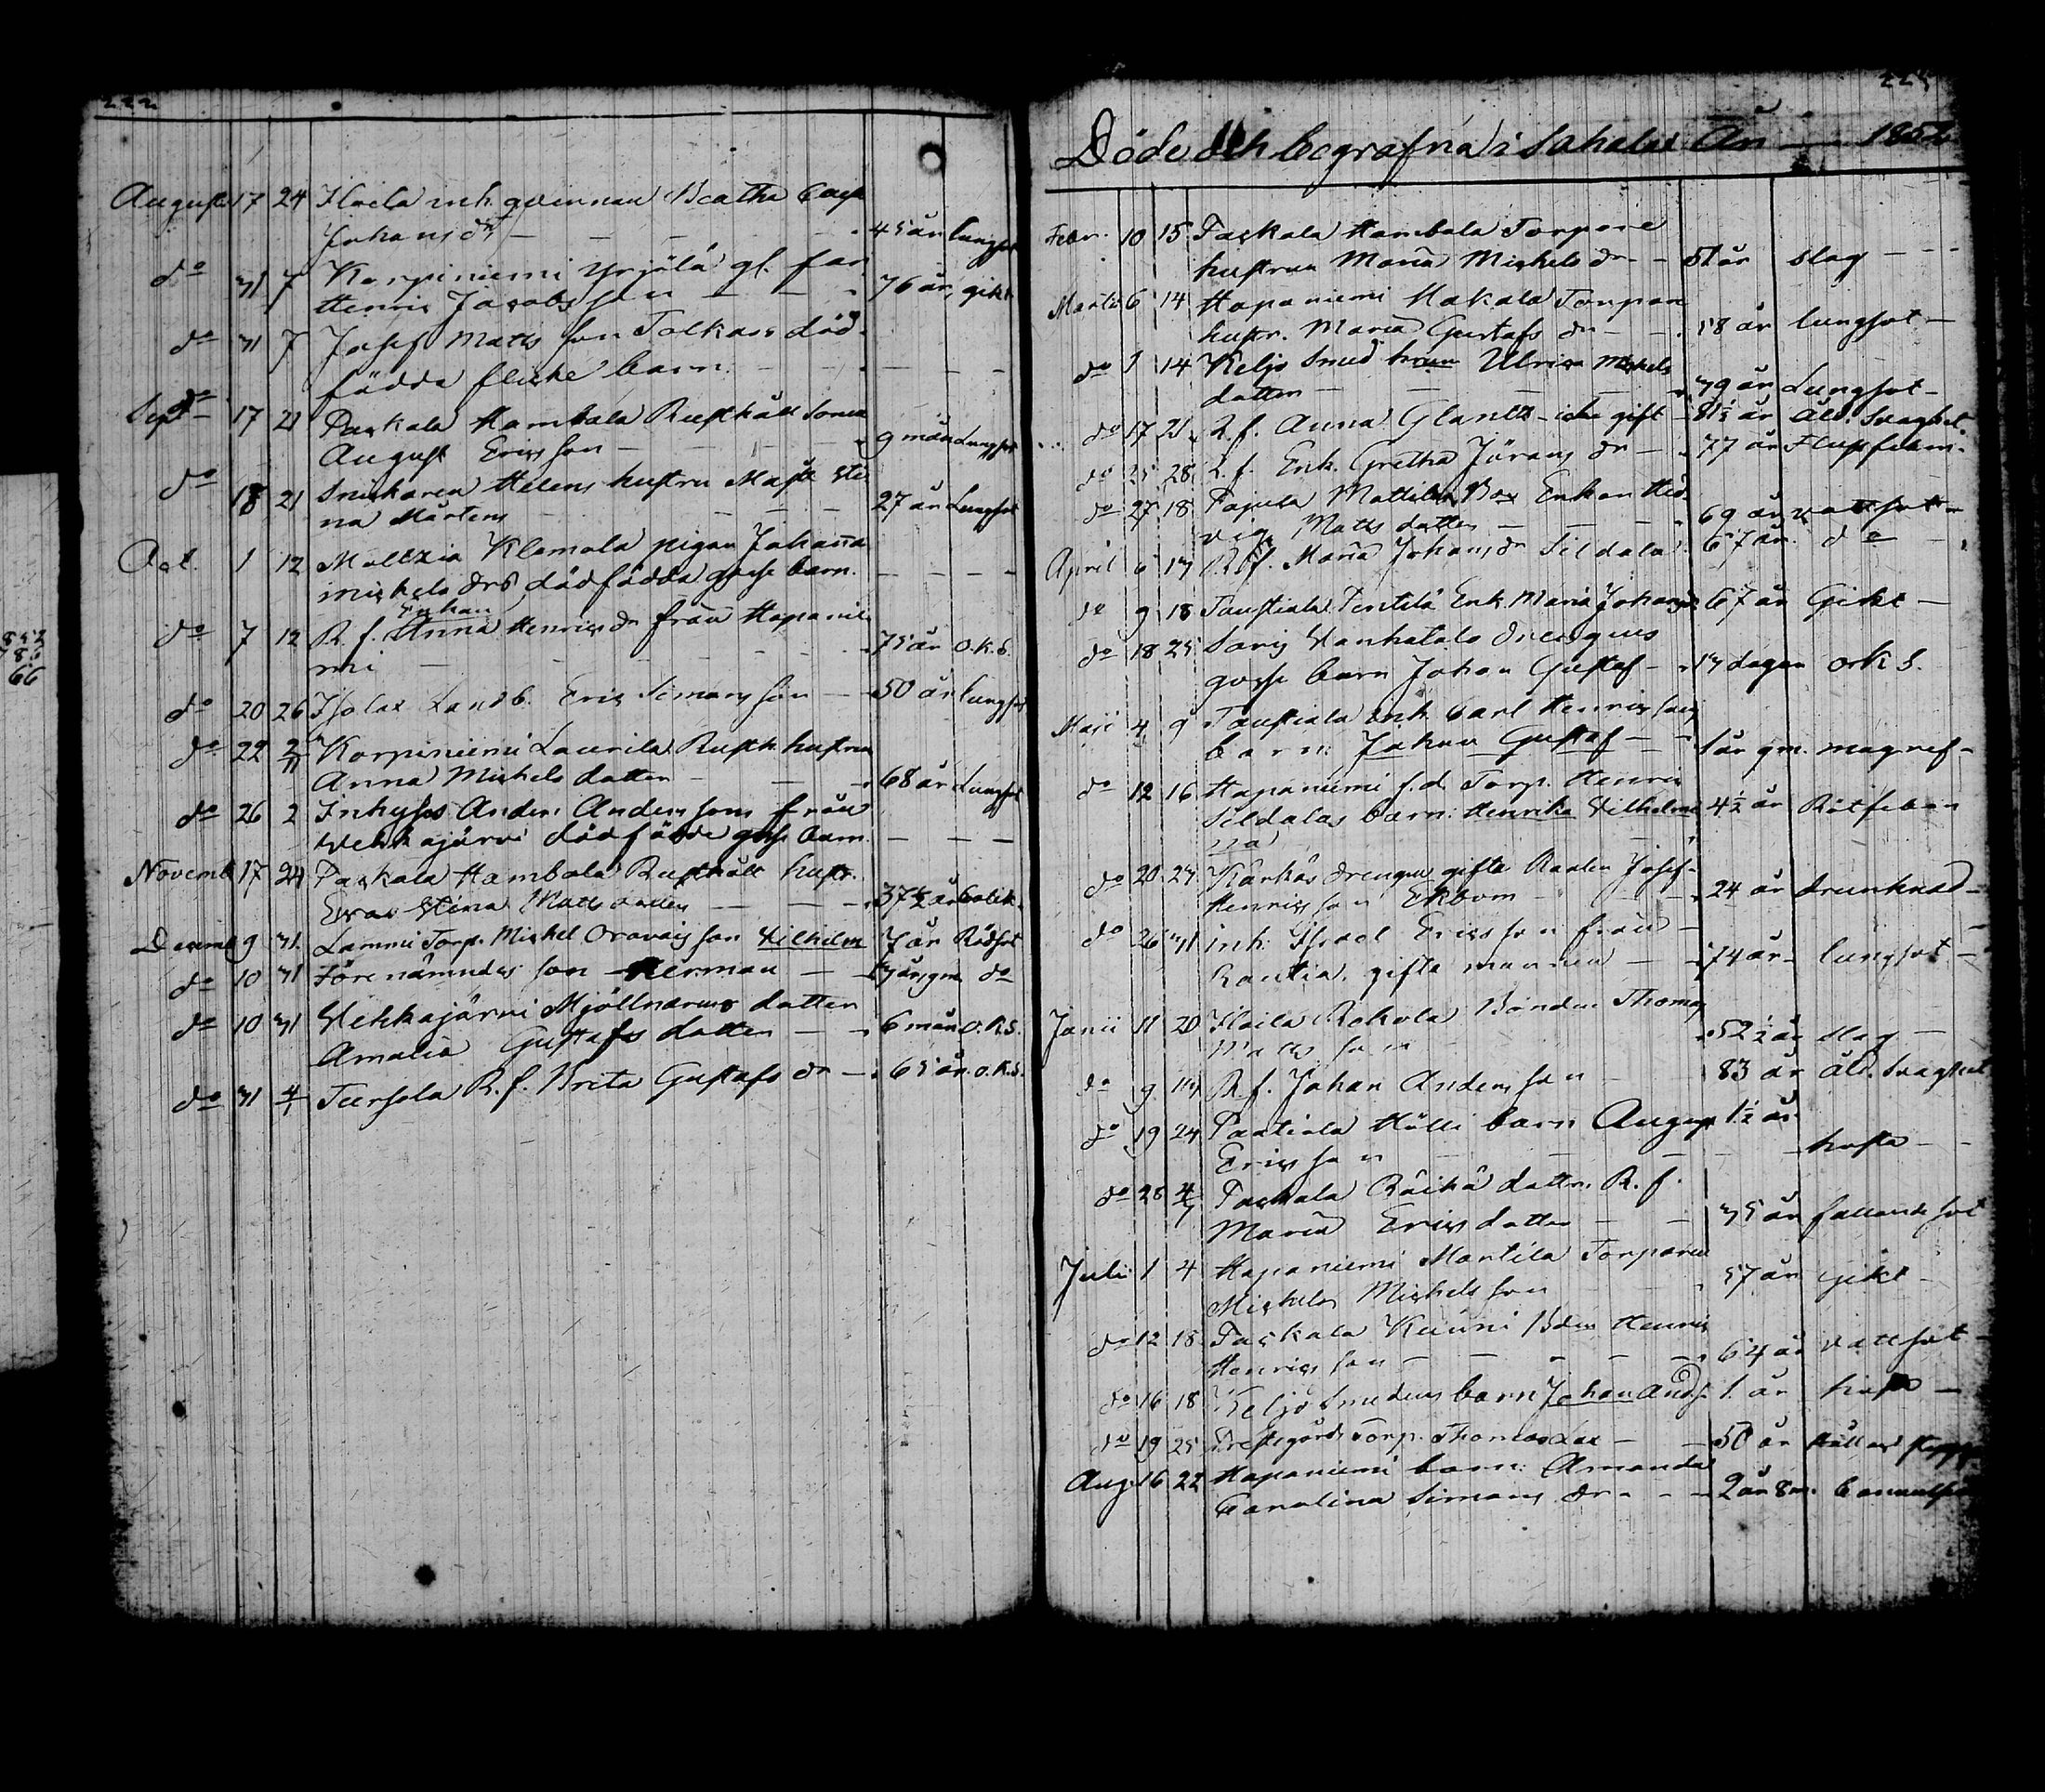 222
Augusti 17 24 Ilvela inh. qvinnan Beatha Cajs
Johans dr 45 år lungsot
do 31 7 Korpiniemi Yrjölä gl. far
Henric Jacobsson 76 år, gikt
do 31 7 Josef Matts son Talkars död
födda flicke barn
Sept 17 21 Packala Hambala Rusthåll. sonen
August Ericsson 9 mån Lungsot
do 18 21 Snickaren Helens hustru Maja Sti
na Mårtens 27 år Lungsot
Oct. 1 12 Moltzia Klemola pigan Johanna
Michels drs dödfödda gosse barn
do 7 12 R. f. Enkan Anna Henrics dr från Haponie
mi 75 år o.k.s.
do 20 26 Isolax Landb. Eric Simonsson 50 år lungsot
do 22 2/11 Korpiniemi Laurila Rusth. hustrun
Anna Michels dotter 68 år Lungsot
do 26 2 Inhyses Anders Anderssons från
Wehkajärvi dödfödde gosse barn
Novemb 17 24 Packala Hambala Rusthåll. hustr.
Eva Stina Matts dotter 37½ år Colik
Decemb 9 31 Lammi Torp. Michel Oravais son Wilhelm 7 år Rödsot
do 10 31 Förenämndes son Herman 3 år 9 m do
do 10 31 Wehkajärvi Mjöllnarens dotter
Amalia Gustafs dotter 6 mån o.k.s.
do 31 4/1 Tursola R. f. Brita Gustafs dr 65 år o.k.s.
Döde och begrafna i Sahalax År 1852
Febr. 10 15 Packala Hambala Torpare
hustrun Maria Michels dr 51 år slag
Martii 6 14 Haponiemi Makala Torpare
hustr. Maria Gustafs dr 58 år lungsot
do 9 14 Keljo Smed Ulrica Michels
dotter 39 år Lungsot
do 17 21 R. f. Anna Glantz icke gift 81½ år Åld. svaghet.
do 25 28 R. f. Enk. Gretha Jörans dr 77 år Flussfeber
do 27 18 Papula Mattila Enkan Hed
vig Matts dotter 69 år vattsot
April 6 13 R. f. Maria Johans dr Sildala 67 år do
do 9 18 Taustiala Tentilä Enk. Maria Johans 67 år Gikt
do 18 25 Saris Wanhatalo drengens
gosse barn Johan Gustaf 13 dagar ok S.
Maji 4 9 Taustiala inh. Carl Henrics sons
barn: Johan Gustaf 1 år 9 m. magref
do 12 16 Haponiemi f.d. Torp. Henric
Sildalas barn: Henrika Wilhelmi
na 4½ år Rötfeber
do 20 23 Kärkäs drengen gifta Karlen Josef
Henricsson Ekbom 24 år drunknad
do 26 31 inh. Israel Ericsson från
Rautia, gifta mannen 74 år lungsot
Junii 11 20 Ilvila Rekola Bonden Thomas
Matts son 52½ år slag
do 9 R. f. Johan Andersson 83 år åld. svaghet
do 19 24 Pentiala Hölli barn August 1½ år
Ericsson hosta
do 28 4/7 Packala Räikä dotter. R. f.
Maria Erics dotter 35 år fallandesot
Julii 1 4 Haponiemi Martila Torparen
Michels Michels son 57 år gikt
do 12 18 Packala Kunni Bden Henric
Henrics son 64 år vattsot
do 16 18 Keljo Smedens barn Johan 1 år hosta
do 19 25 Prestgårds Torp. Thomas Lax 50 år
Aug. 16 22 Haponiemi barn: Amanda
Carolina Simons dr 2 år 8 m.